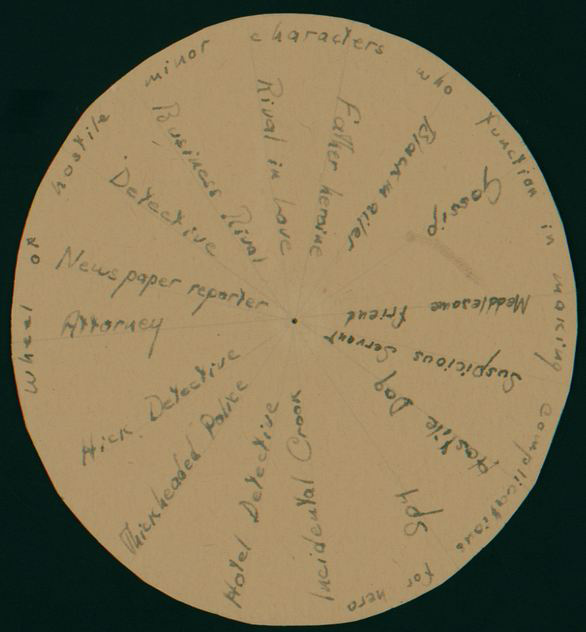 wheel of hostile minor characters who function in making complications for hero
Father heroine
Blackmailer
Gossip
Meddlesome friend
Suspicious Servant
Hostile Dog
Spy
Incidental Crook
Hotel Detective
Thickheaded Police
Hick Detective
Attorney
Newspaper reporter
Detective
Business Rival
Rival in Love